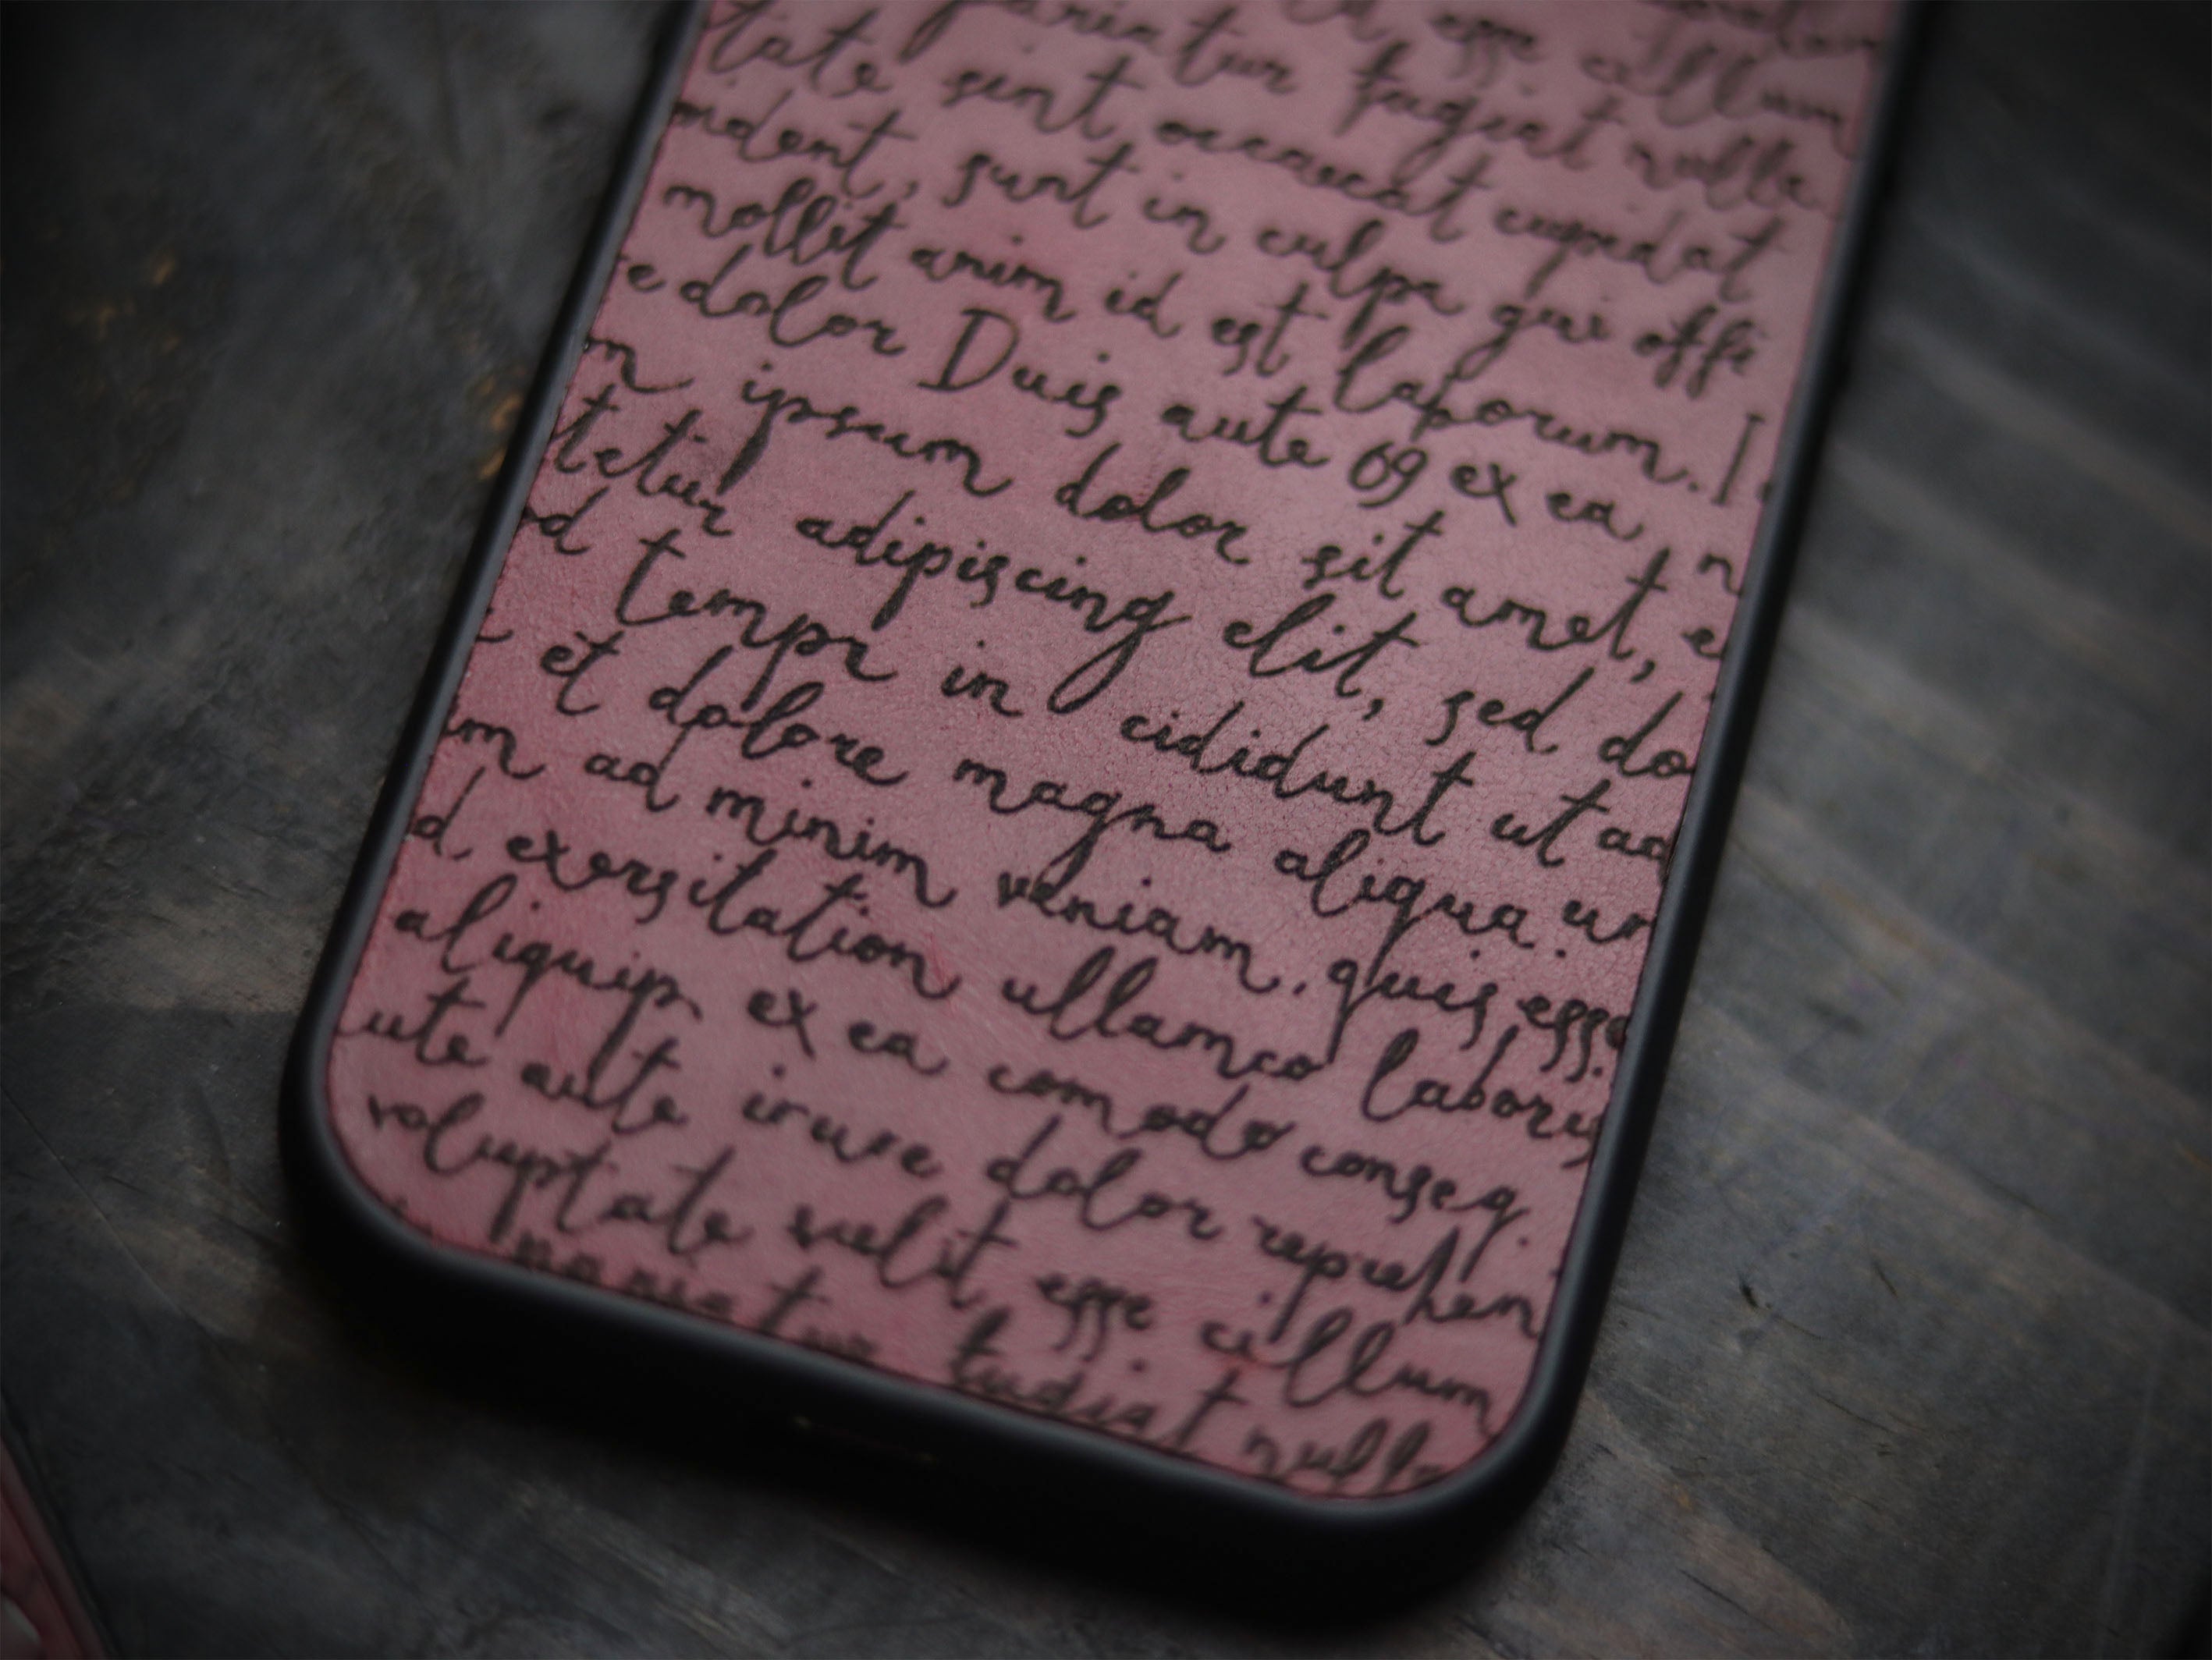 esse cillum
pariatur fugiat nulla
tate sint occaecat cupidat
ident, sunt in culpa qui offi
mollit anim id est laborum. l
e dolor Duis aute 69 ex ea n
m ipsum dolor sit amet, e
tetur adipiscing elit, sed do
d tempr in cididunt ut ad
et dolore magna aliqua. ur
im ad minim veniam. quis esse
d exersitation ullamco laboris
aliquip ex ea comodo conseq.
ute aute irure dolor reprehen
voluptate velit esse cillum
pariatur fugiat nulla